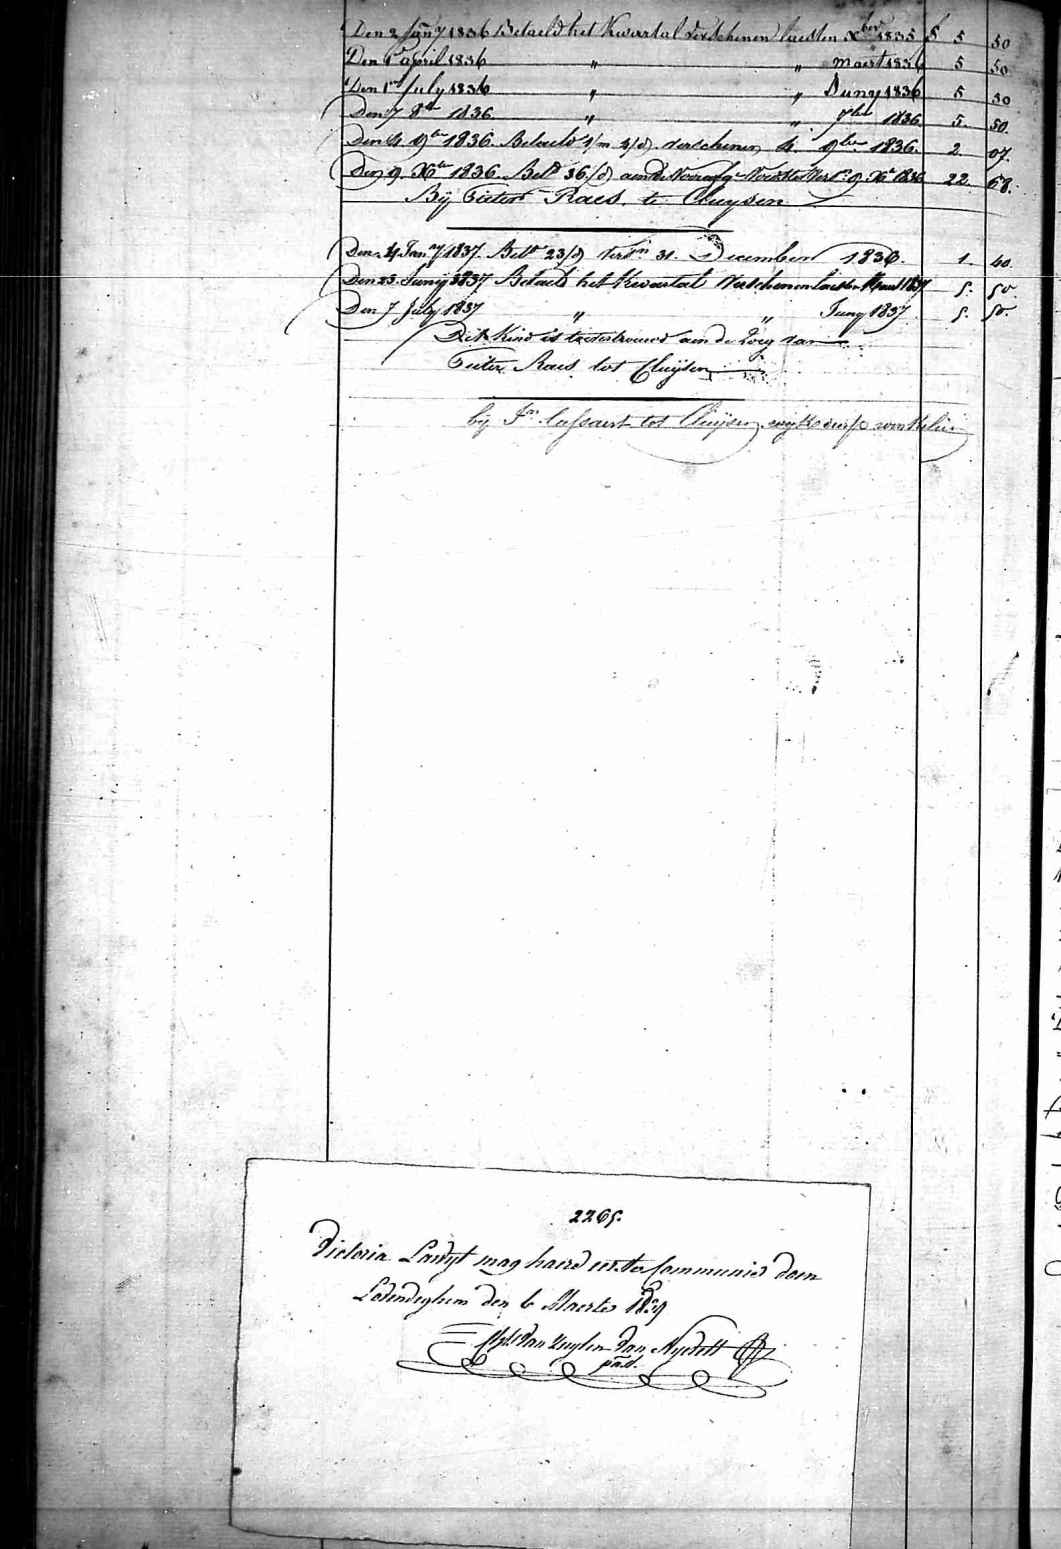 Den 2 Jany 1836 Betaeld het Kwartal verschenen laesten Xber 1835 f 5 50
Den 1 april 1836 " " maert 1836 5 50
Den 1 July 1836 " " Juny 1836 5 50
Den 7 8br 1836 " " 7ber 1836 5. 50.
Den 4 9br 1836. Betaeld 1/m 4/d verschenen 4. 9ber 1836. 2. 07.
Den 9 Xbr 1836. Bet 36/d aen de 9 Xbr 1836 22. 68.
Bij Pieter Raes te Cluysen
Den 24 Jany 1837. Bet 23/d vers 31. December 1836. 1. 40.
Den 23 Junij 1837 Betaeld het Kwartal Verschenen laesten Maart 1837 5. 50.
Den 7 July 1837 " " Juny 1837 5. 50.
Dit Kind is toevertrouwd aen de Zorg van
Pieter Raes tot Cluijsen
bij Jn tot Cluijsen, wyk
2265.
Victoria mag haere eerste Communie doen
Lovendeghem den 6 Maerte 1839
Van Zuylen Van Nyevelt
past.